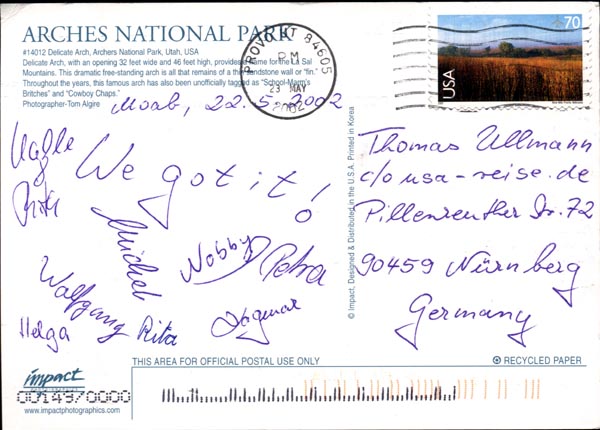 ARCHES NATIONAL PARK
#14012 Delicate Arch, Archers National Park, Utah, USA
Delicate Arch, with an opening 32 feet wide and 46 feet high, provides a frame for the La Sal
Mountains. This dramatic free-standing arch is all that remains of a thin sandstone wall or "fin."
Throughout the years, this famous arch has also been unofficially tagged as "School-Marm's
Britches" and "Cowboy Chaps."
Photographer-Tom Algire
PROVO UT 84605
PM
23 MAY
2002
70
USA
Moab, 22.5.2002
We got it!
Michel
Nobby
Petra
Wolfgang
Helga
Rita
Dagmar
© Impact, Designed & Distributed in the U.S.A. Printed in Korea
Thomas Ullmann
c/o usa-reise.de
Pillenreuther Str. 72
90459 Nürnberg
Germany
THIS AREA FOR OFFICIAL POSTAL USE ONLY
RECYCLED PAPER
impact
00149/0000
www.impactphotographics.com